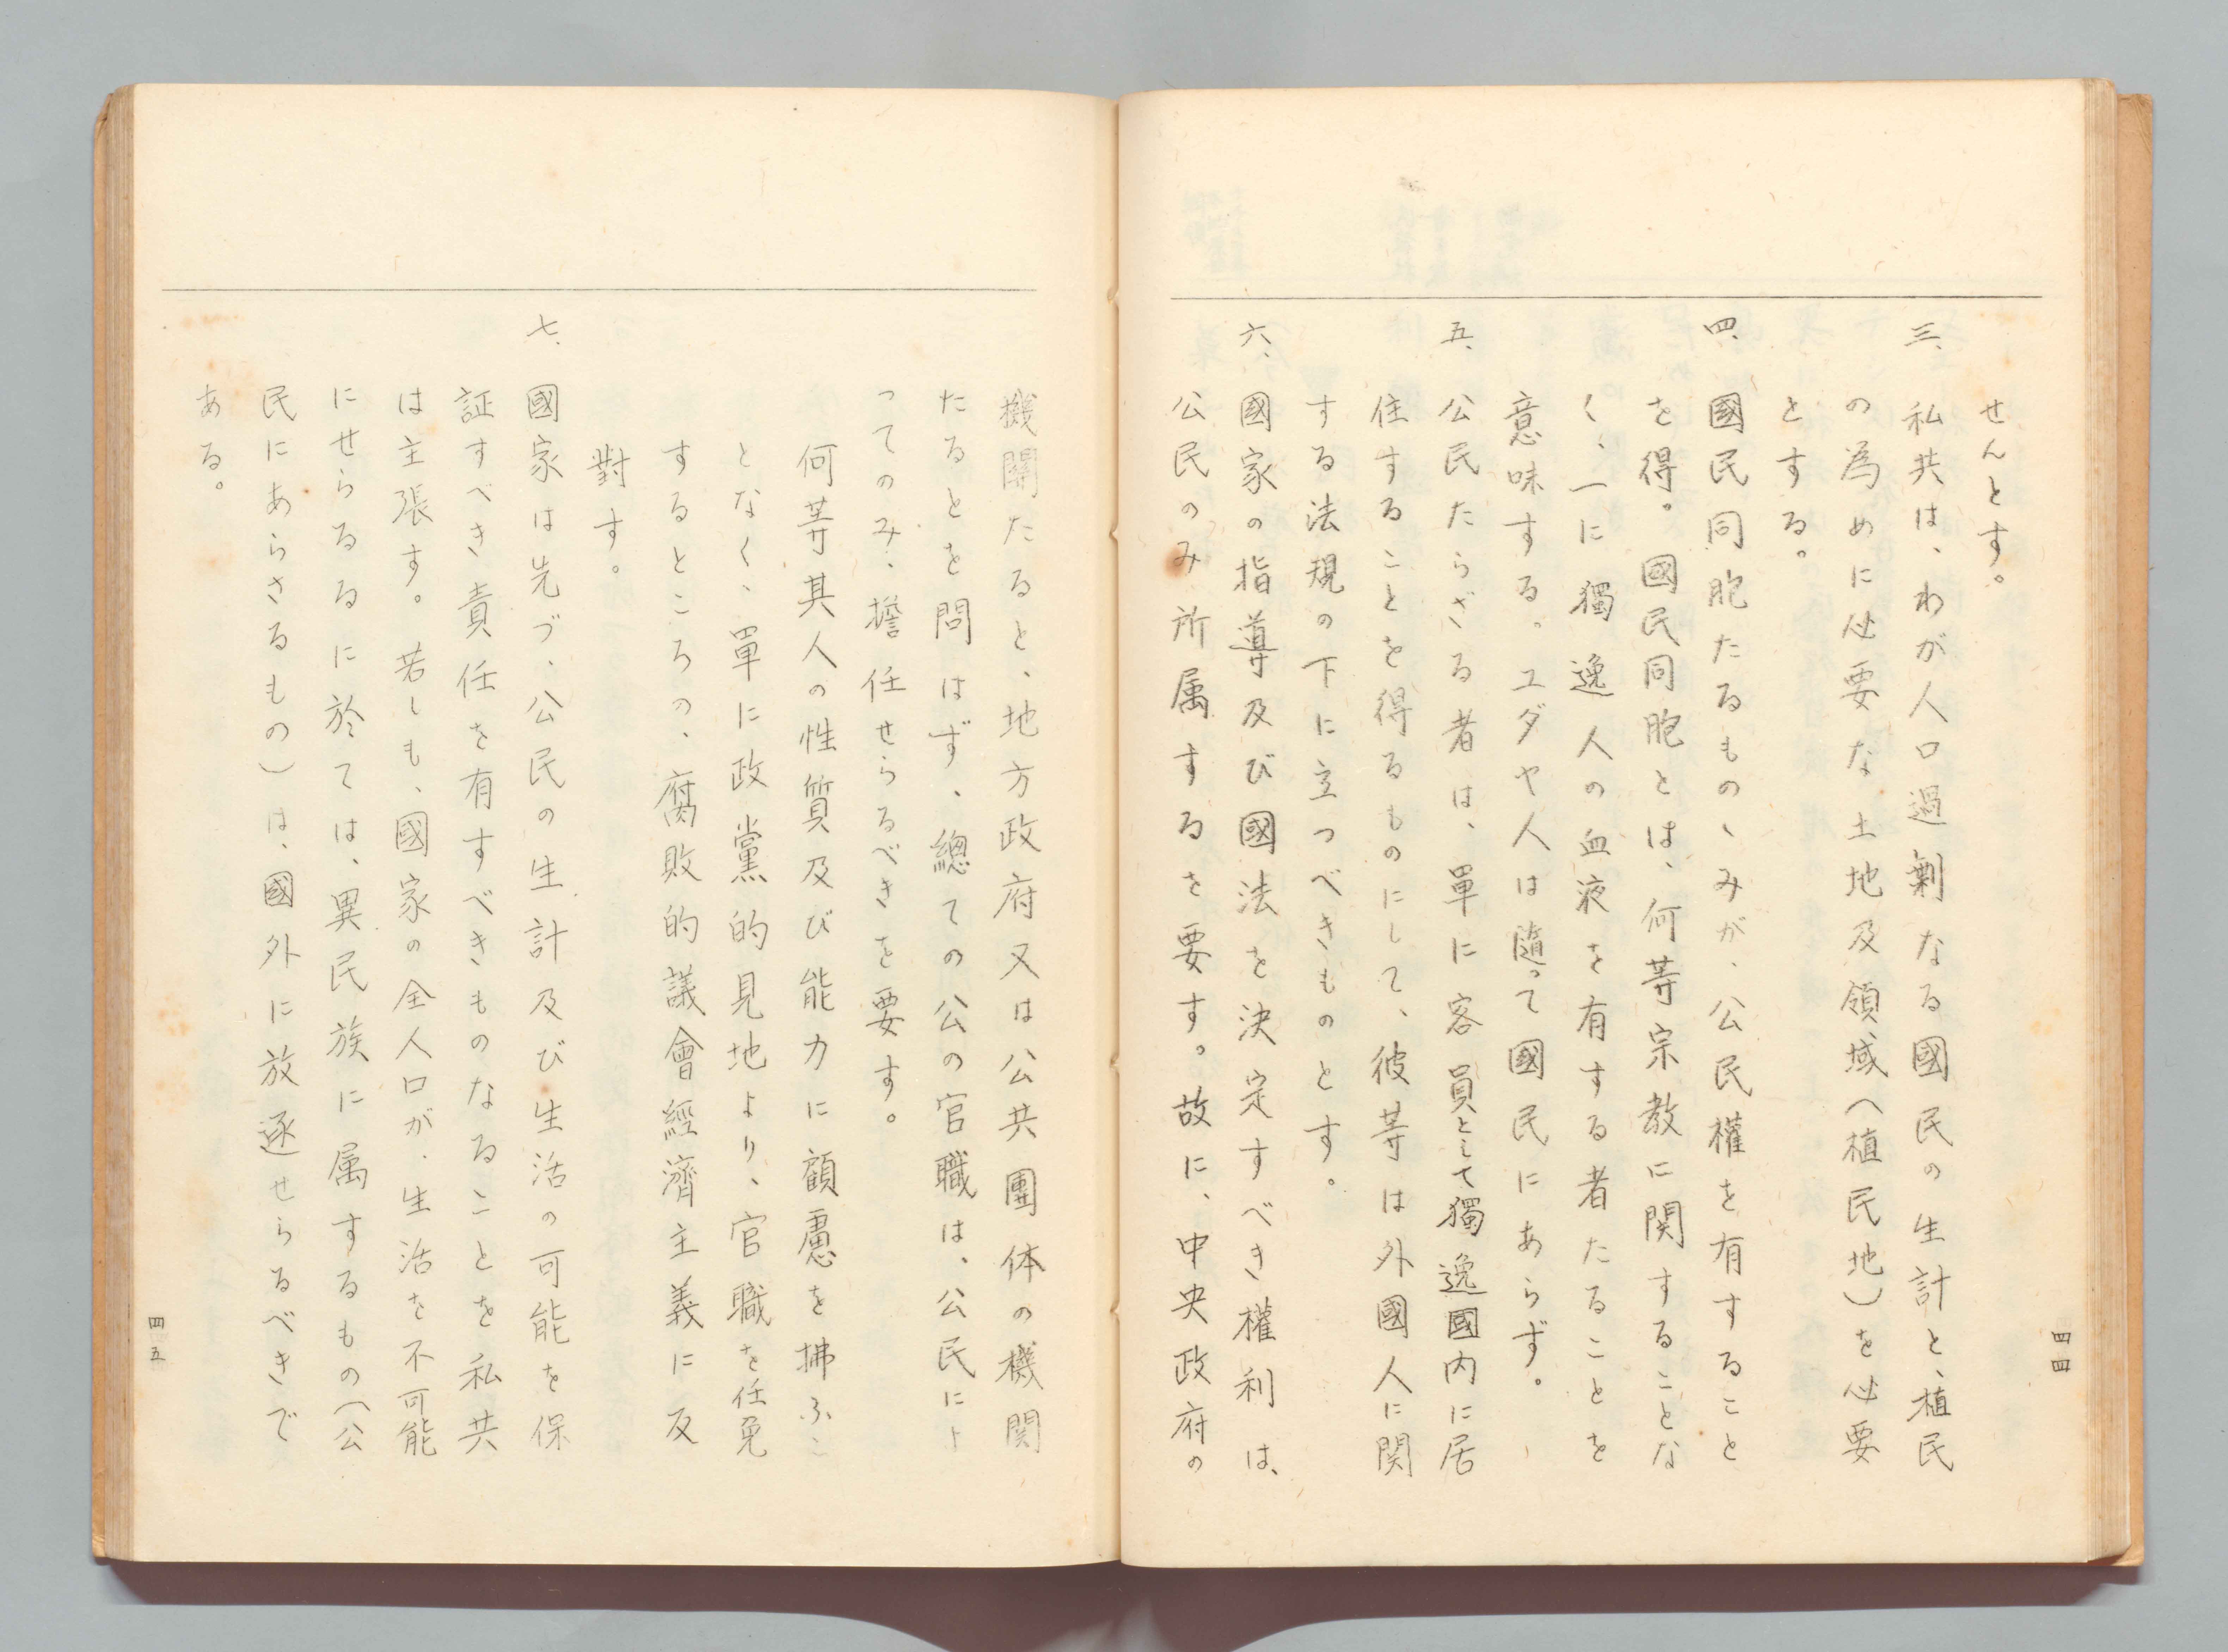 せんとす。
三、私共は、わが人口過剰なる國民の生計と、植民
の為めに必要な土地及領域（植民地）を必要
とする。
四、國民同胞たるものゝみが、公民權を有すること
を得。國民同胞とは、何等宗教に関することな
く、一に獨逸人の血液を有する者たることを
意味する。ユダヤ人は隨って國民にあらず。
五、公民たらざる者は、單に客員として獨逸國内に居
住することを得るものにして、彼等は外國人に関
する法規の下に立つべきものとす。
六、國家の指導及び國法を決定すべき權利は、
公民のみ所属するを要す。故に、中央政府の
四四
機關たると、地方政府又は公共團体の機関
たるとを問はず、總ての公の官職は、公民によ
ってのみ、擔任せらるべきを要す。
何等其人の性質及び能力に顧慮を拂ふこ
となく、單に政黨的見地より、官職を任免
するところの、腐敗的議會經濟主義に反
對す。
七、國家は先づ、公民の生計及び生活の可能を保
証すべき責任を有すべきものなることを私共
は主張す。若しも、國家の全人口が、生活を不可能
にせらるるに於ては、異民族に属するもの（公
民にあらさるもの）は、國外に放逐せらるべきで
ある。
四五